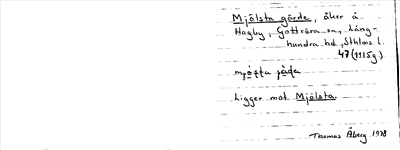 Mjölsta gärde, åker å
Hagby, Gottröra sn, Lång-
hundra hd, Sthlms l.
47 (1115g)
jäde
Ligger mot Mjölsta.
Thomas Åberg 1978